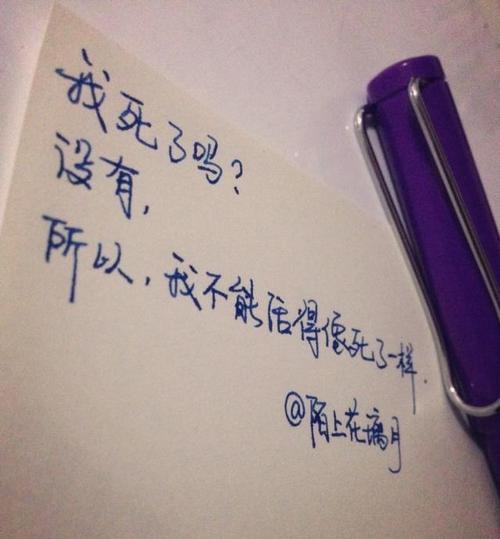 我死了吗?
没有,
所以,我不能活得像死了一样.
@陌上花璃月